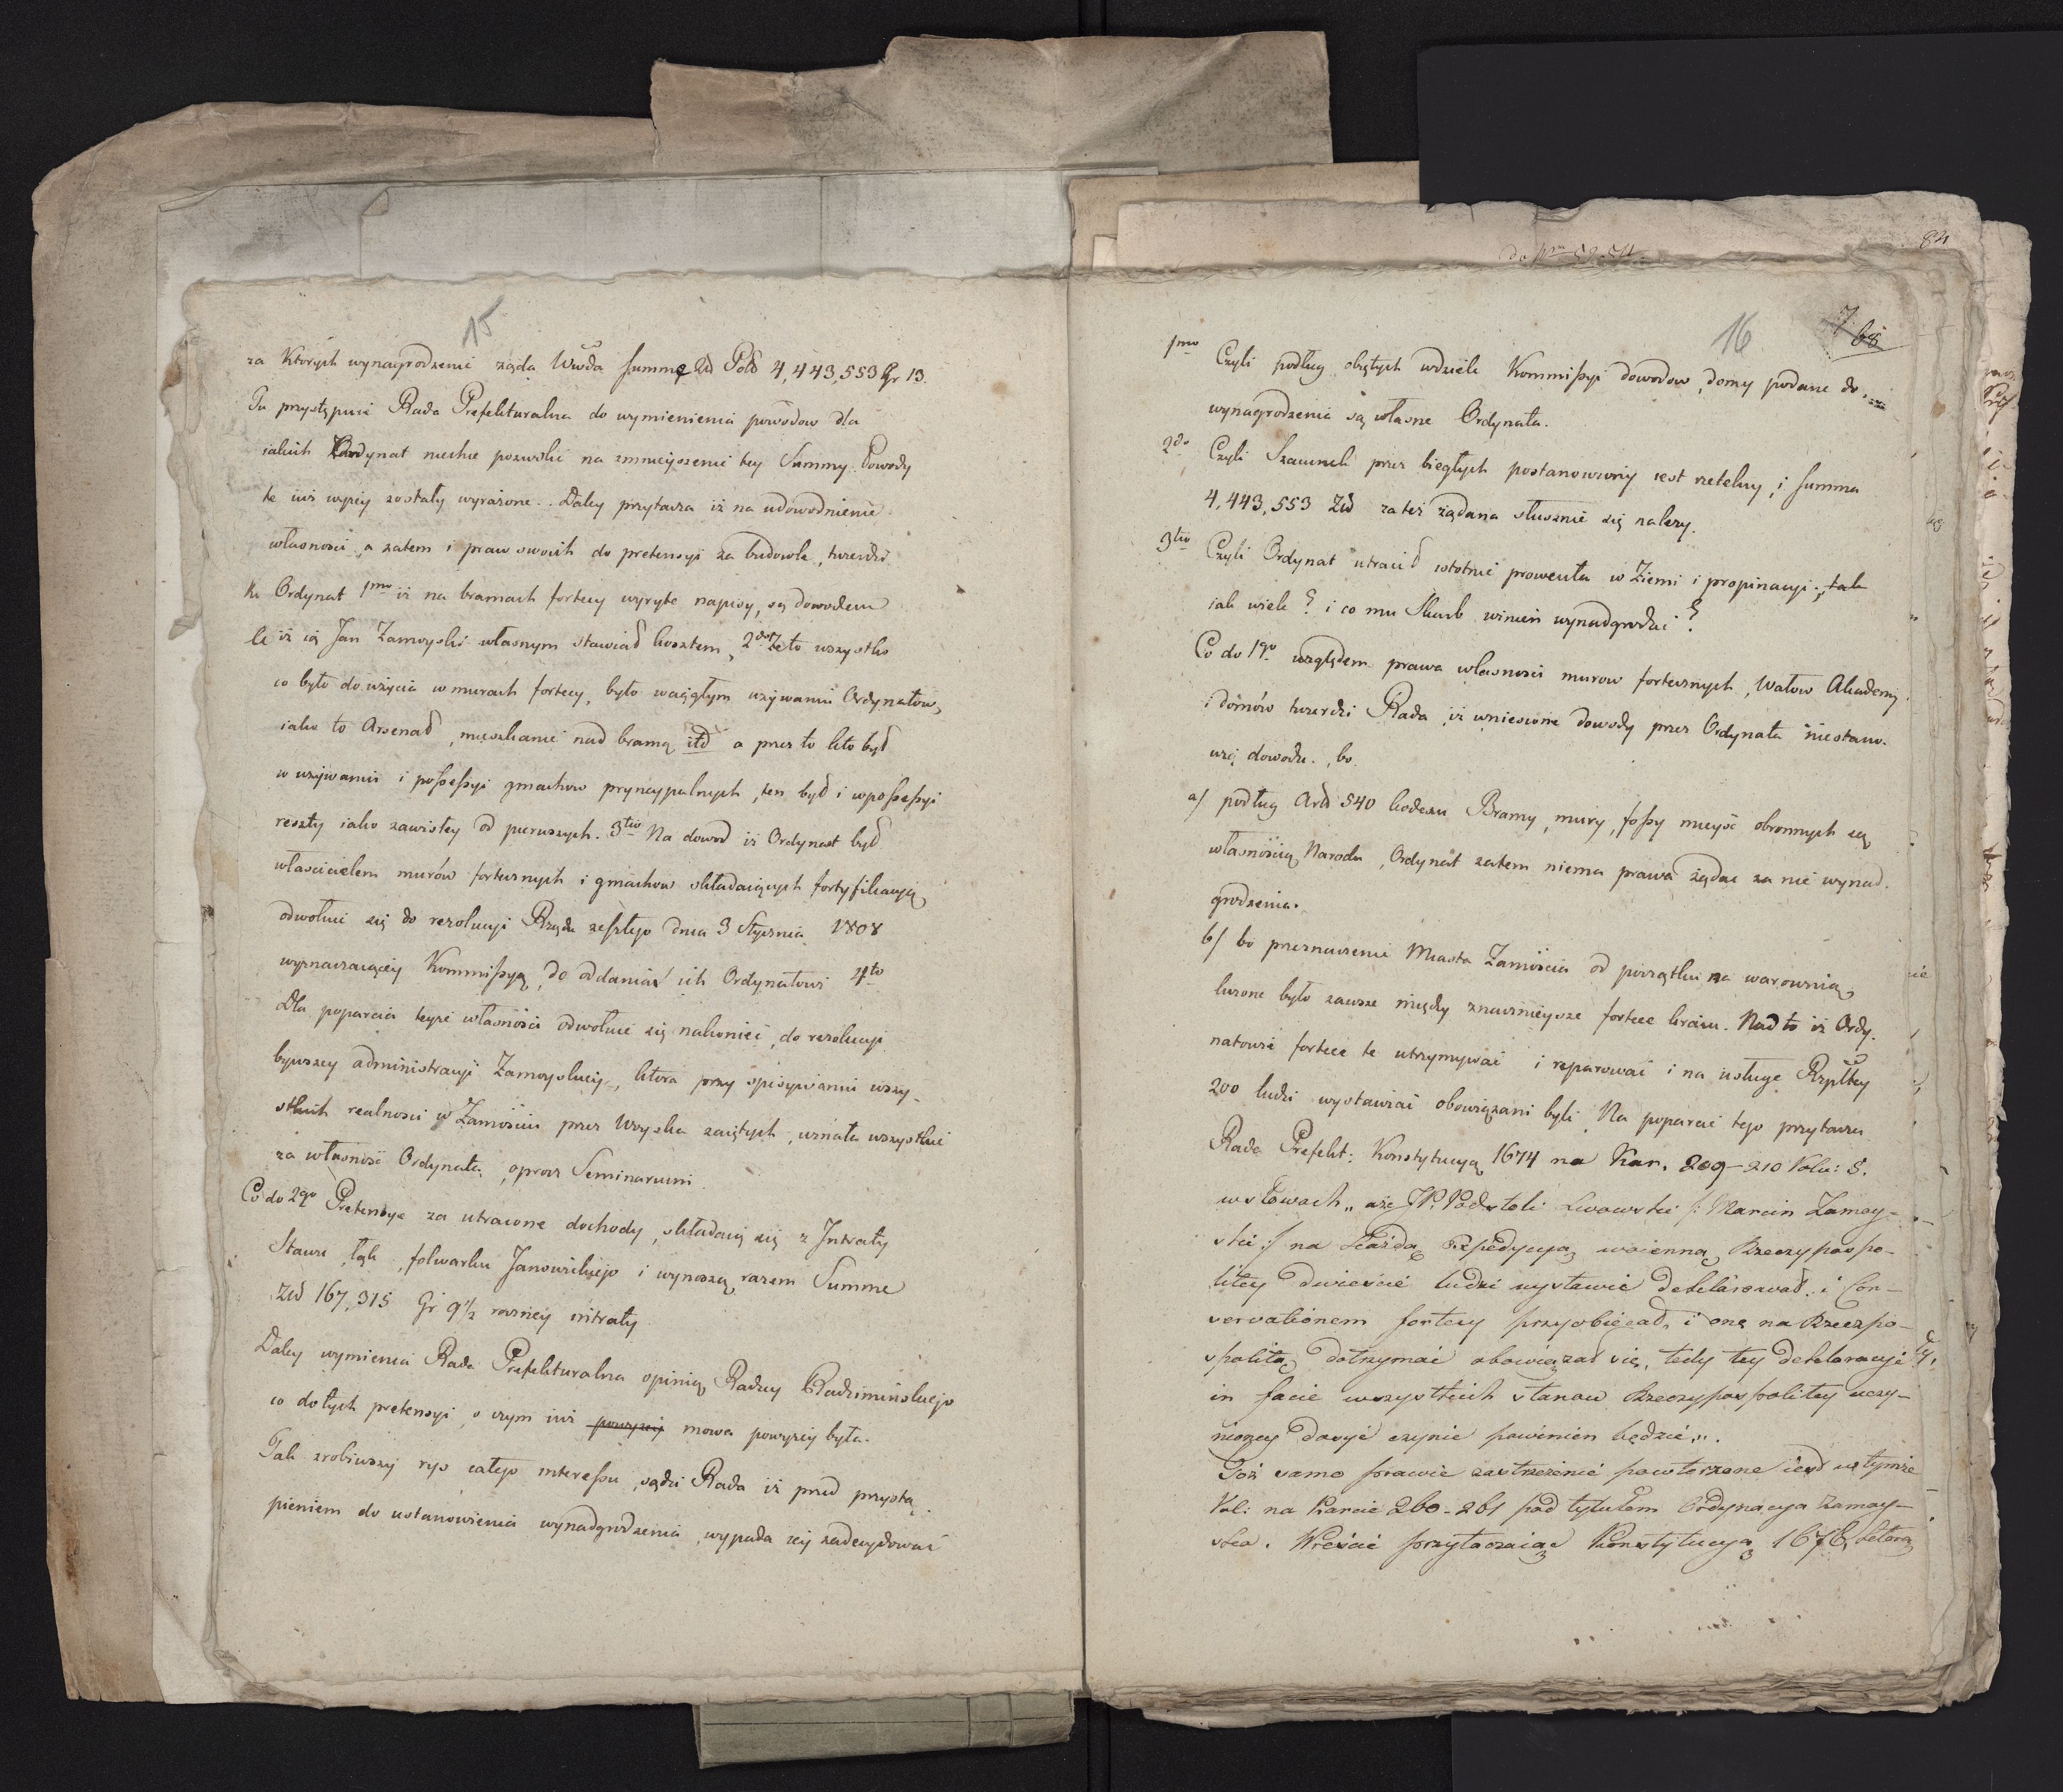 15
za ktorych wynagrodzenie żąda Wwda summę Zł Pol 4,443,553 Gr 13.
Tu przystępuie Rada Prefekturalna do wymienienia powodow dla
iakich Ordynat niechce pozwolić na zmnieyszenie tey Summy. Powody
te iuż wyżey zostały wyrażone. Daley przytacza iż na udowodnienie
własności, a zatem i praw swoich do pretensyi za budowle, twierdzi
Ordynat 1mo iż na bramach fortecy wyryte napisy, są dowodem
iż ią Jan Zamoyski własnym stawiał kosztem, 2do Że to wszystko
co było do użycia w murach fortecy, było w ciągłym używaniu Ordynatow,
iako to Arsenał, mieszkanie nad bramą itd a przez to kto był
w używaniu i possessyi gmachow pryncypalnych, ten był i w possessyi
reszty iako zawisłey od pierwszych. 3tio Na dowod iż Ordynat był
właścicielem murów fortecznych i gmachow składaiących fortyfikacyą
odwołuie się do rezolucyi Rządu zeszłego dnia 3 Stycznia 1808
wyznaczaiącey Kommissyą, do oddania ich Ordynatowi 4to
Dla poparcia teyże własności odwołuie się nakoniec, do rezolucyi
bywszey administracyi Zamoyskiey, ktora przy spisywaniu wszy-
stkich realności w Zamościu przez Woysko zaiętych, uznała wszystkie
za własność Ordynata, oprocz Seminarium.
Co do 2go Pretensye za utracone dochody, składaią się z Intraty
Stawu, łąk, folwarku Janowickiego i wynoszą razem Summe
Zł 167,315 Gr 9 1/2 roczney intraty
Daley wymienia Rada Prefekturalna opinią Radzcy Radzimińskiego
co do tych pretensyi, o czym iuż powyżey mowa powyżey była.
Tak zrobiwszy rys całego interessu, sądzi Rada iż przed przystą-
pieniem do ustanowienia wynadgrodzenia, wypada iey zadecydować
84
16
7
68
1mo Czyli podług obiętych w dziele Kommissyi dowodow, domy podane do
wynagrodzenia są własne Ordynata.
2do Czyli Szacunek przez biegłych postanowiony iest rzetelny, i summa
4,443,553 Zł za też żądana słusznie się należy.
3tio Czyli Ordynat utracił istotnie prowenta w Ziemi i propinacyi, tak
iak wiele? i co mu Skarb winien wynadgrodzić?
Co do 1go względem prawa własności murow fortecznych, Wałow Akademij
i domów twierdzi Rada, iż wniesione dowody przez Ordynata niestano-
wią dowodu, bo
a/ podług Art 540 kodexu Bramy, mury, fossy mieysc obronnych są
własnością Narodu, Ordynat zatem niema prawa żądać za nie wynad-
grodzenia.
b/ bo przeznaczenie Miasta Zamościa od początku na warownią
liczone było zawsze między znacznieysze fortece kraiu. Nad to iż Ordy-
natowie fortece te utrzymywać i reparować i na usługe Rzpltey
200 ludzi wystawiać obowiązani byli. Na poparcie tego przytacza
Rada Prefekt: Konstytucyą 1674 na Kar. 209-210 Volu: 5.
w słowach „aże JP. Podstoli Lwowski /: Marcin Zamoy-
ski :/ na każdą Expedycyą woienną Rzeczypospo-
litey dwieście ludzi wystawić deklarował, i Con-
servationem fortecy przyobiecał, i onę na Rzeczpo-
spolitą dotrzymać obowiązał się, tedy tey deklaracyi
in facie wszystkich stanow Rzeczypospolitey uczy-
nioney dosyć czynić powinien będzie„.
Toż samo prawie zastrzeżenie powtorzone iest w tymże
Vol: na karcie 260-261 pod tytułem Ordynacya Zamoy-
ska. Wreście przytaczaiąc Konstytucyą 1678, ktorą